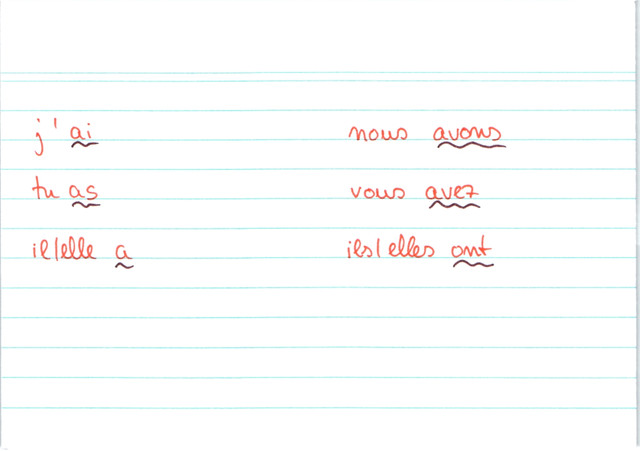 j'ai nous avons
tu as vous avez
il/elle a ils/elles ont